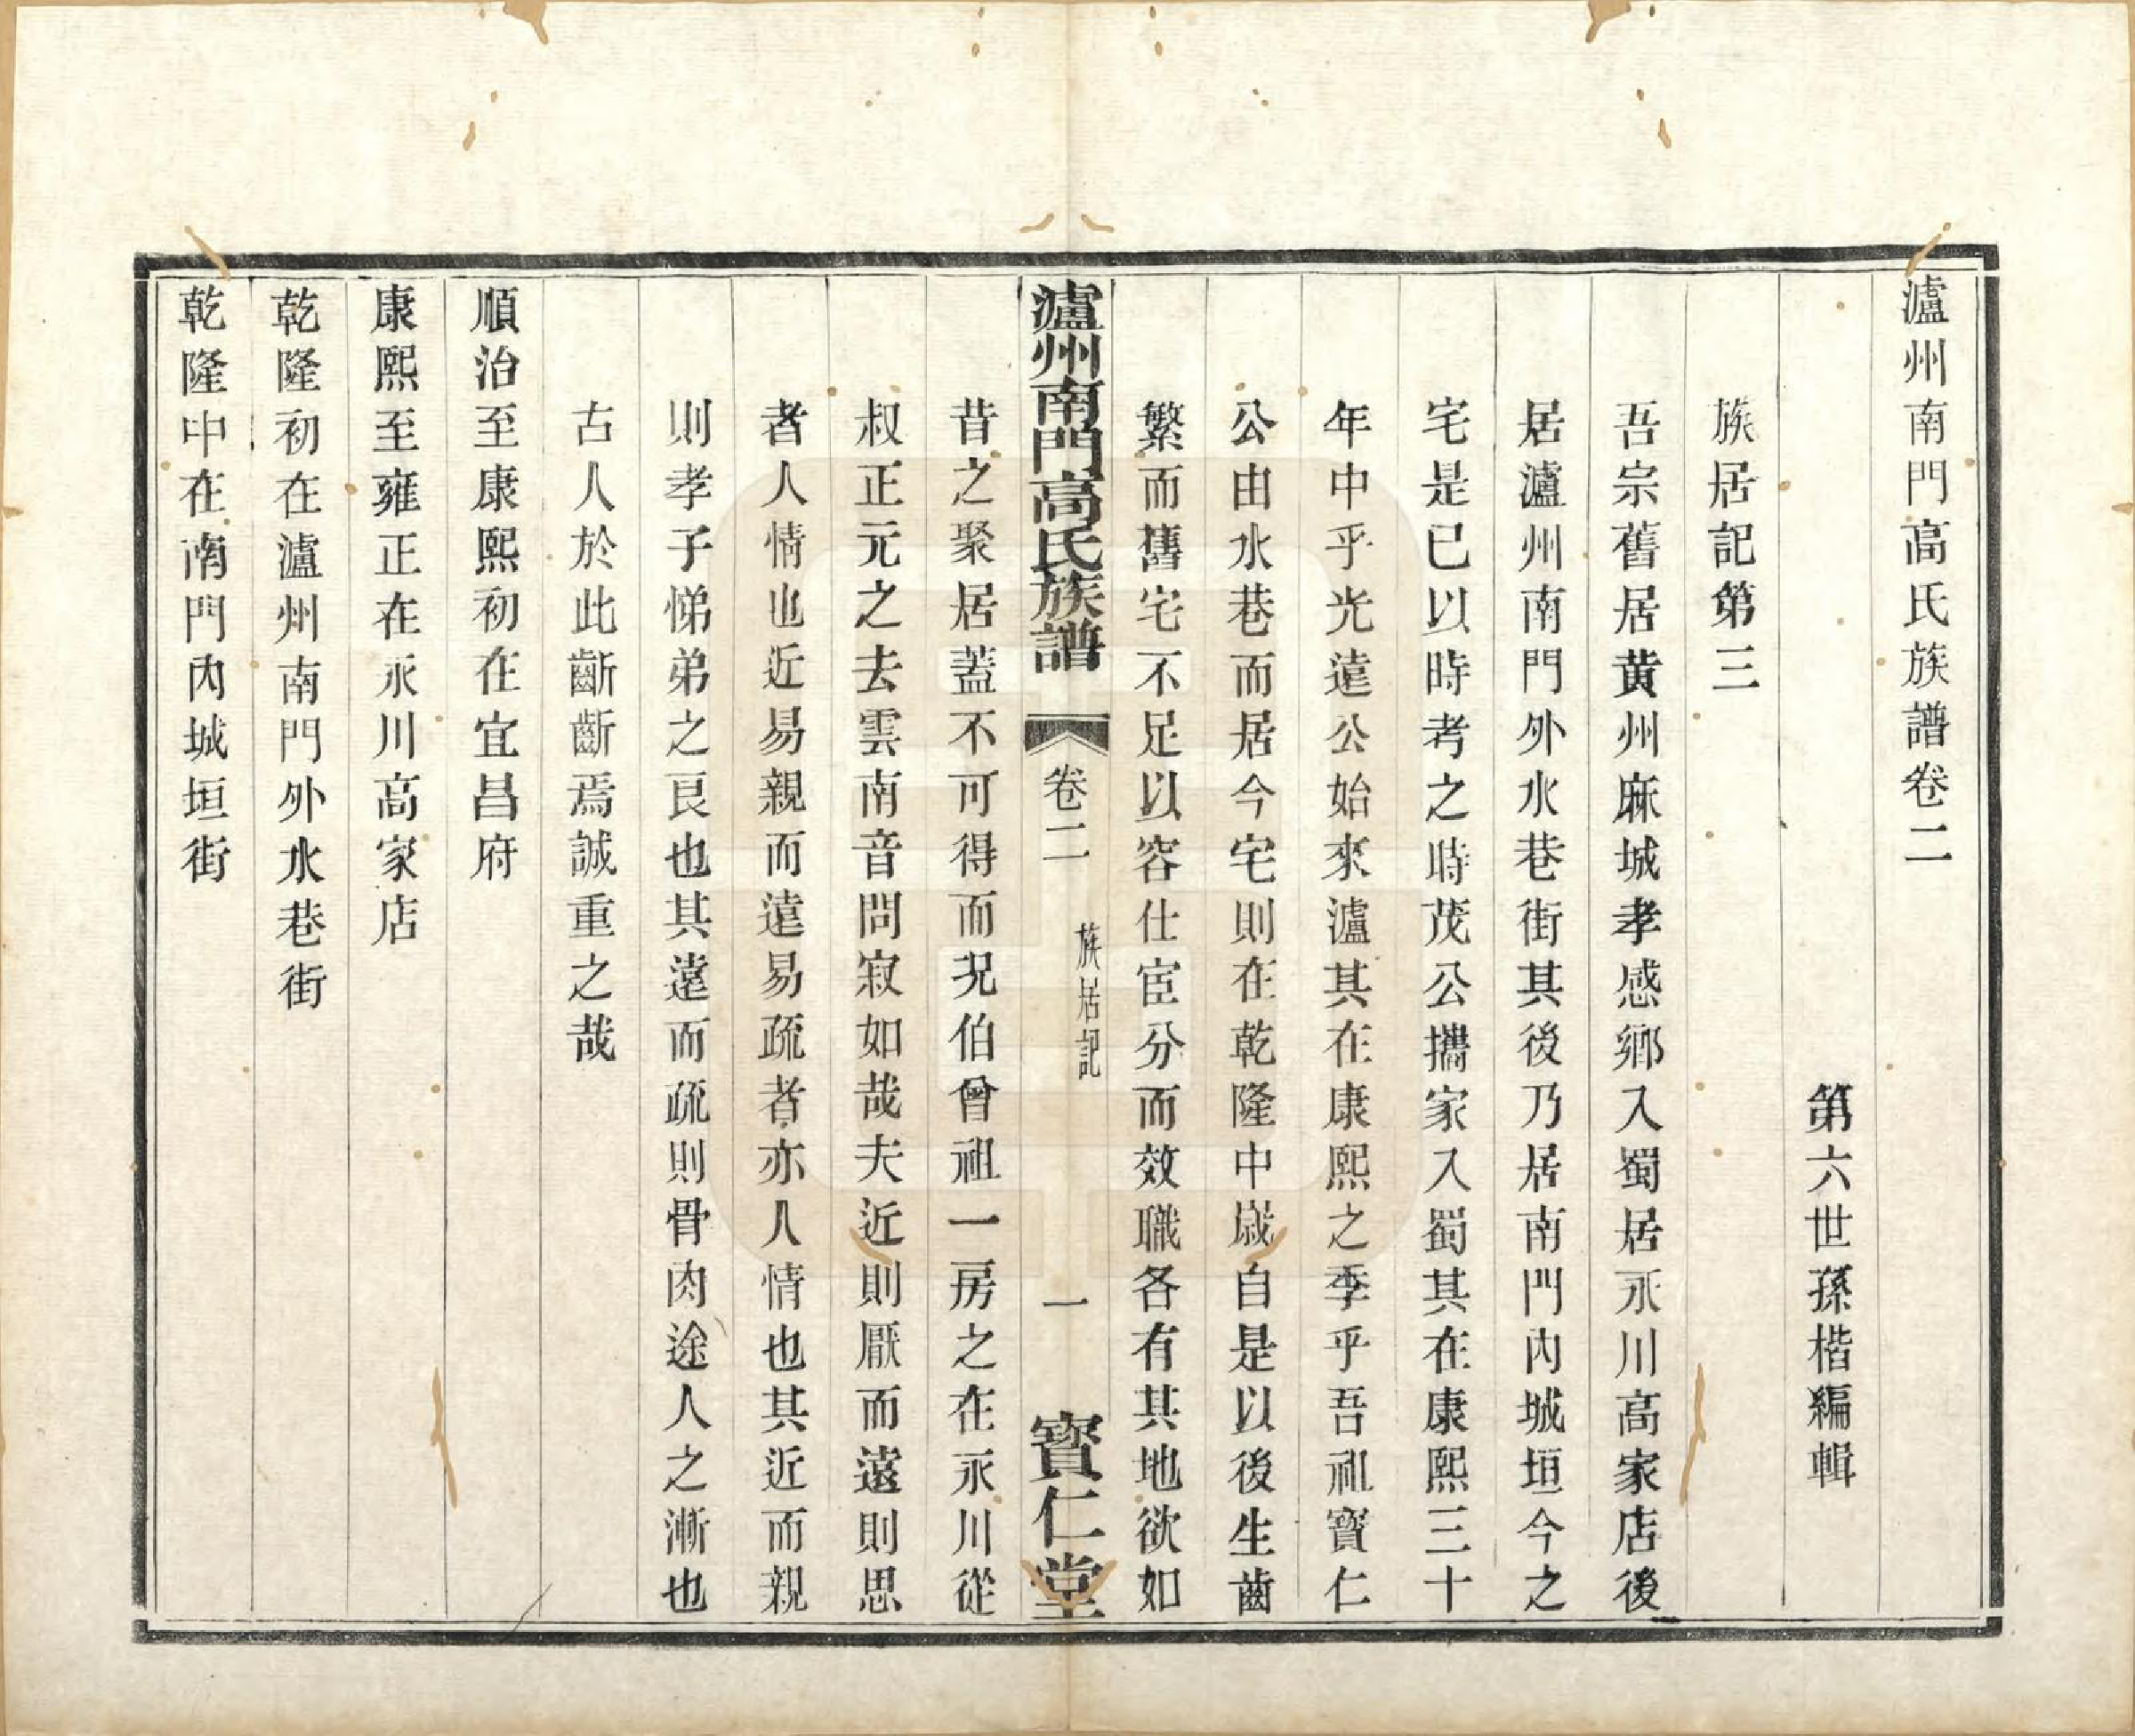 瀘州南門高氏族譜卷二
第六世孫楷編輯
族居記第三
吾宗舊居黄州麻城孝感鄉入蜀居永川高家店後
居瀘州南門外水巷街其後乃居南門內城垣今之
宅是已以時考之時茂公攜家入蜀其在康熙三十
年中乎光遠公始來瀘其在康熙之季乎吾祖寶仁
公由水巷而居今宅則在乾隆中嵗自是以後生齒
繁而舊宅不足以容仕宦分而效職各有其地欲如
瀘州南門高氏族譜
卷二
族居記
一
寶仁堂
昔之聚居蓋不可得而況伯曾祖一房之在永川從
叔正元之去雲南音問寂如哉夫近則厭而遠則思
者人情也近易親而遠易疏者亦人情也其近而親
則孝子悌弟之良也其遠而疏則骨肉途人之漸也
古人於此齗齗焉誠重之哉
順治至康熙初在宜昌府
康熙至雍正在永川高家店
乾隆初在瀘州南門外水巷街
乾隆中在南門內城垣街